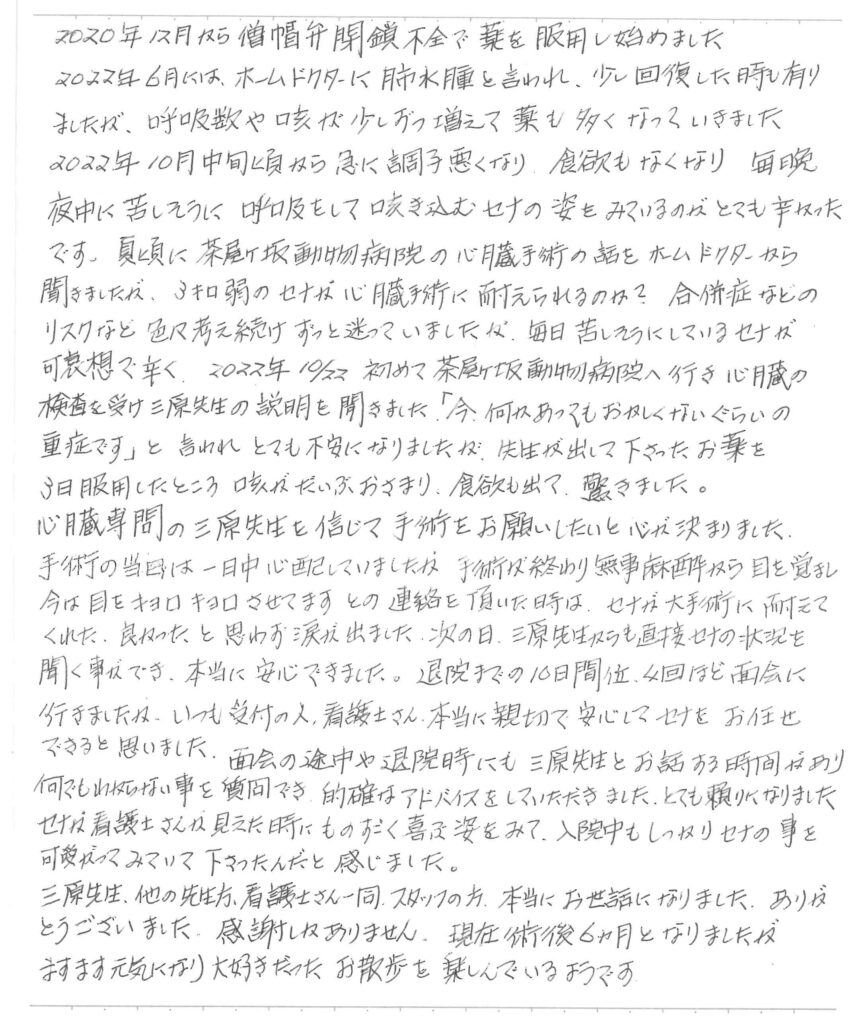 2020年12月から僧帽弁閉鎖不全で薬を服用し始めました
2022年6月には、ホームドクターに肺水腫と言われ、少し回復した時も有り
ましたが、呼吸数や咳が少しずつ増えて薬も多くなっていきました
2022年10月中旬頃から急に調子悪くなり、食欲もなくなり 毎晩
夜中に苦しそうに呼吸をして咳き込むセナの姿をみているのがとても辛かった
です。夏頃に茶屋ヶ坂動物病院の心臓手術の話をホームドクターから
聞きましたが、3キロ弱のセナが心臓手術に耐えられるのか？合併症などの
リスクなど色々考え続けずっと迷っていましたが、毎日苦しそうにしているセナが
可哀想で辛く、2022年10/22 初めて茶屋ヶ坂動物病院へ行き心臓の
検査を受け三原先生の説明を聞きました「今、何があってもおかしくないぐらいの
重症です」と言われとても不安になりましたが、先生が出して下さったお薬を
3日服用したところ咳がだいぶおさまり、食欲も出て、驚きました。
心臓専門の三原先生を信じて手術をお願いしたいと心が決まりました。
手術の当日は一日中心配していましたが 手術が終わり無事麻酔から目を覚まし
今は目をキョロキョロさせてますとの連絡を頂いた時は、セナが大手術に耐えて
くれた、良かったと思わず涙が出ました。次の日、三原先生からも直接セナの状況を
聞く事ができ、本当に安心できました。退院までの10日間位、4回ほど面会に
行きましたが、いつも受付の人、看護士さん、本当に親切で安心してセナをお任せ
できると思いました。面会の途中や退院時にも三原先生とお話する時間があり
何でもわからない事を質問でき、的確なアドバイスをしていただきました。とても頼りになりました
セナが看護士さんが見えた時にものすごく喜ぶ姿をみて、入院中もしっかりセナの事を
可愛がってみていて下さったんだと感じました。
三原先生、他の先生方、看護士さん一同、スタッフの方、本当にお世話になりました。ありが
とうございました。感謝しかありません。現在術後6ヵ月となりましたが
ますます元気になり大好きだったお散歩を楽しんでいるようです